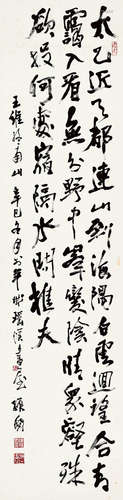 太乙近天都連山到海隅白雲迴望合青
靄入看無分野中峯變陰晴衆壑殊
欲投何處宿隔水問樵夫
王維終南山 辛巳冬月